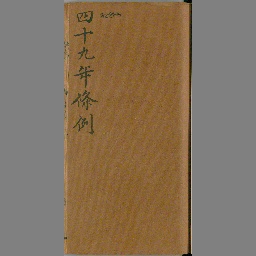 四十九年條例